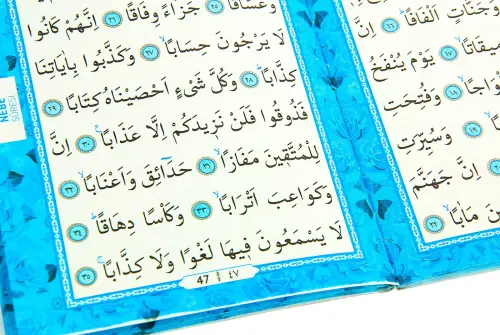 وَجَنَّاتٍ اَلْفَافًا ﴿١٦﴾ اِنَّ
يقَاتًا ﴿١٧﴾ يَوْمَ يُنْفَخُ
وَاجًا ﴿١٨﴾ وَفُتِحَتِ
وَسُيِّرَتِ
اِنَّ جَهَنَّمَ
مَاٰبًا ﴿٢٢﴾
وَغَسَّاقًا ﴿٢٥﴾ جَزَٓاءً وِفَاقًا ﴿٢٦﴾ اِنَّهُمْ كَانُوا
لَا يَرْجُونَ حِسَابًا ﴿٢٧﴾ وَكَذَّبُوا بِاٰيَاتِنَا
كِذَّابًا ﴿٢٨﴾ وَكُلَّ شَيْءٍ اَحْصَيْنَاهُ كِتَابًا ﴿٢٩﴾
فَذُوقُوا فَلَنْ نَزِيدَكُمْ اِلَّا عَذَابًا ﴿٣٠﴾ اِنَّ
لِلْمُتَّقِينَ مَفَازًا ﴿٣١﴾ حَدَٓائِقَ وَاَعْنَابًا ﴿٣٢﴾
وَكَوَاعِبَ اَتْرَابًا ﴿٣٣﴾ وَكَأْسًا دِهَاقًا ﴿٣٤﴾
لَا يَسْمَعُونَ فِيهَا لَغْوًا وَلَا كِذَّابًا ﴿٣٥﴾
47 ٤٧
NEBE
SURESİ